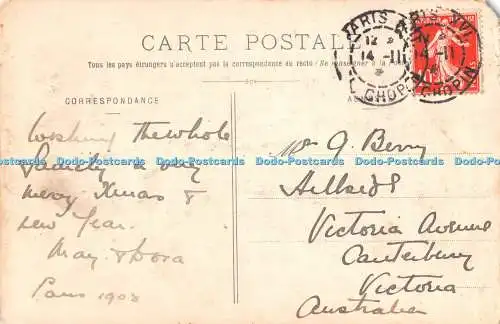 CARTE POSTALE
Tous les pays étrangers n'acceptent pas la correspondance au recto (Se renseigner à la Poste)
CORRESPONDANCE
Wishing the whole
Family a very
merry Xmas &
new Year.
May & Dora
Paris 1908
Mr G. Berry
Hillside
Victoria Avenue
Canterbury
Victoria
Australia
PARIS
12
14 - 11
CHOPIN
PARIS
14 - 11
CHOPIN
Dodo-Postcards Dodo-Postcards Dodo-Postcards Dodo-Postcards Dodo-Postcards